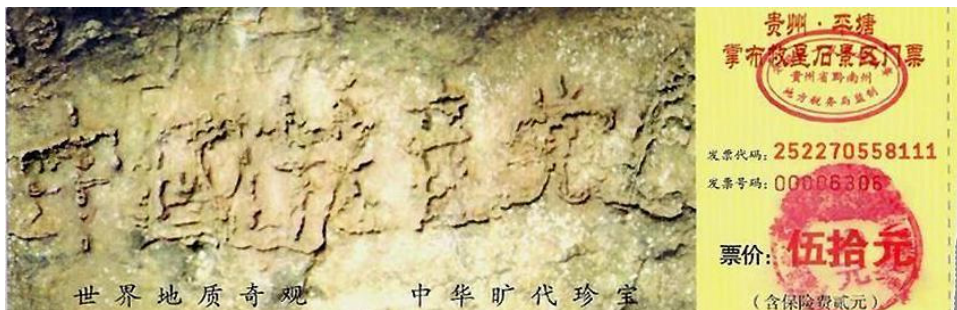 中國共产党
世界地质奇观 中华旷代珍宝
贵州·平塘
掌布救星石景区门票
贵州省黔南州
地方税务局监制
发票代码:252270558111
发票号码:00006306
票价:伍拾元
(含保险费贰元)